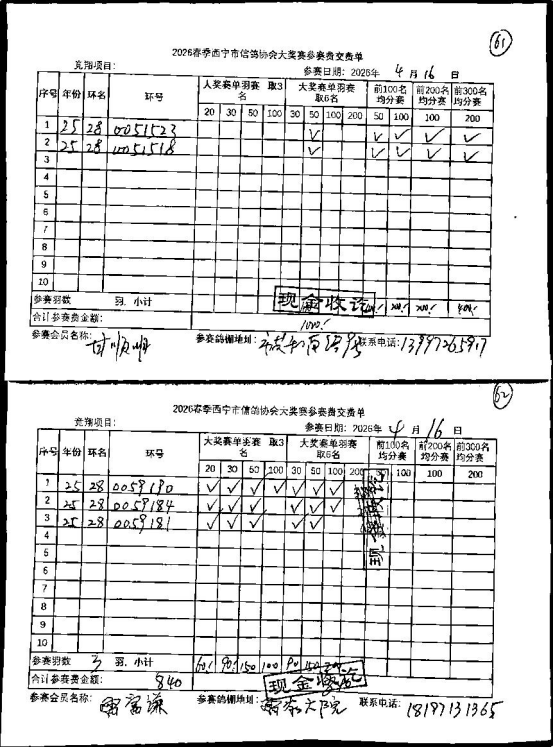 61
2026春季西宁市信鸽协会大奖赛参赛费交费单
竞翔项目: 参赛日期: 2026年 4月 16日
序号 年份 环名 环号 大奖赛单羽赛 取3名 大奖赛单羽赛 取6名 前100名均分赛 前200名均分赛 前300名均分赛
20 30 50 100 30 50 100 200 50 100 100 200
1 25 28 0051523 ✓ ✓ ✓ ✓ ✓
2 25 28 0051518 ✓ ✓ ✓ ✓ ✓
3
4
5
6
7
8
9
10
参赛羽数 羽. 小计 现金收讫 200. 200. 400.
合计参赛费金额: 1000.
参赛会员名称: 参赛鸽棚地址: 联系电话:
62
2026春季西宁市信鸽协会大奖赛参赛费交费单
竞翔项目: 参赛日期: 2026年 4月 16日
序号 年份 环名 环号 大奖赛单羽赛 取3名 大奖赛单羽赛 取6名 前100名均分赛 前200名均分赛 前300名均分赛
20 30 50 100 30 50 100 200 100 100 200
1 25 28 0059190 ✓ ✓ ✓ ✓ ✓ ✓ ✓
2 25 28 0059184 ✓ ✓ ✓ ✓ ✓ ✓
3 25 28 0059181 ✓ ✓ ✓ ✓ ✓
4
5
6
7
8
9
10
参赛羽数 3 羽. 小计 60. 90. 150 100 90. 150 200
合计参赛费金额: 840 现金收讫
参赛会员名称: 参赛鸽棚地址: 联系电话: 18197131365